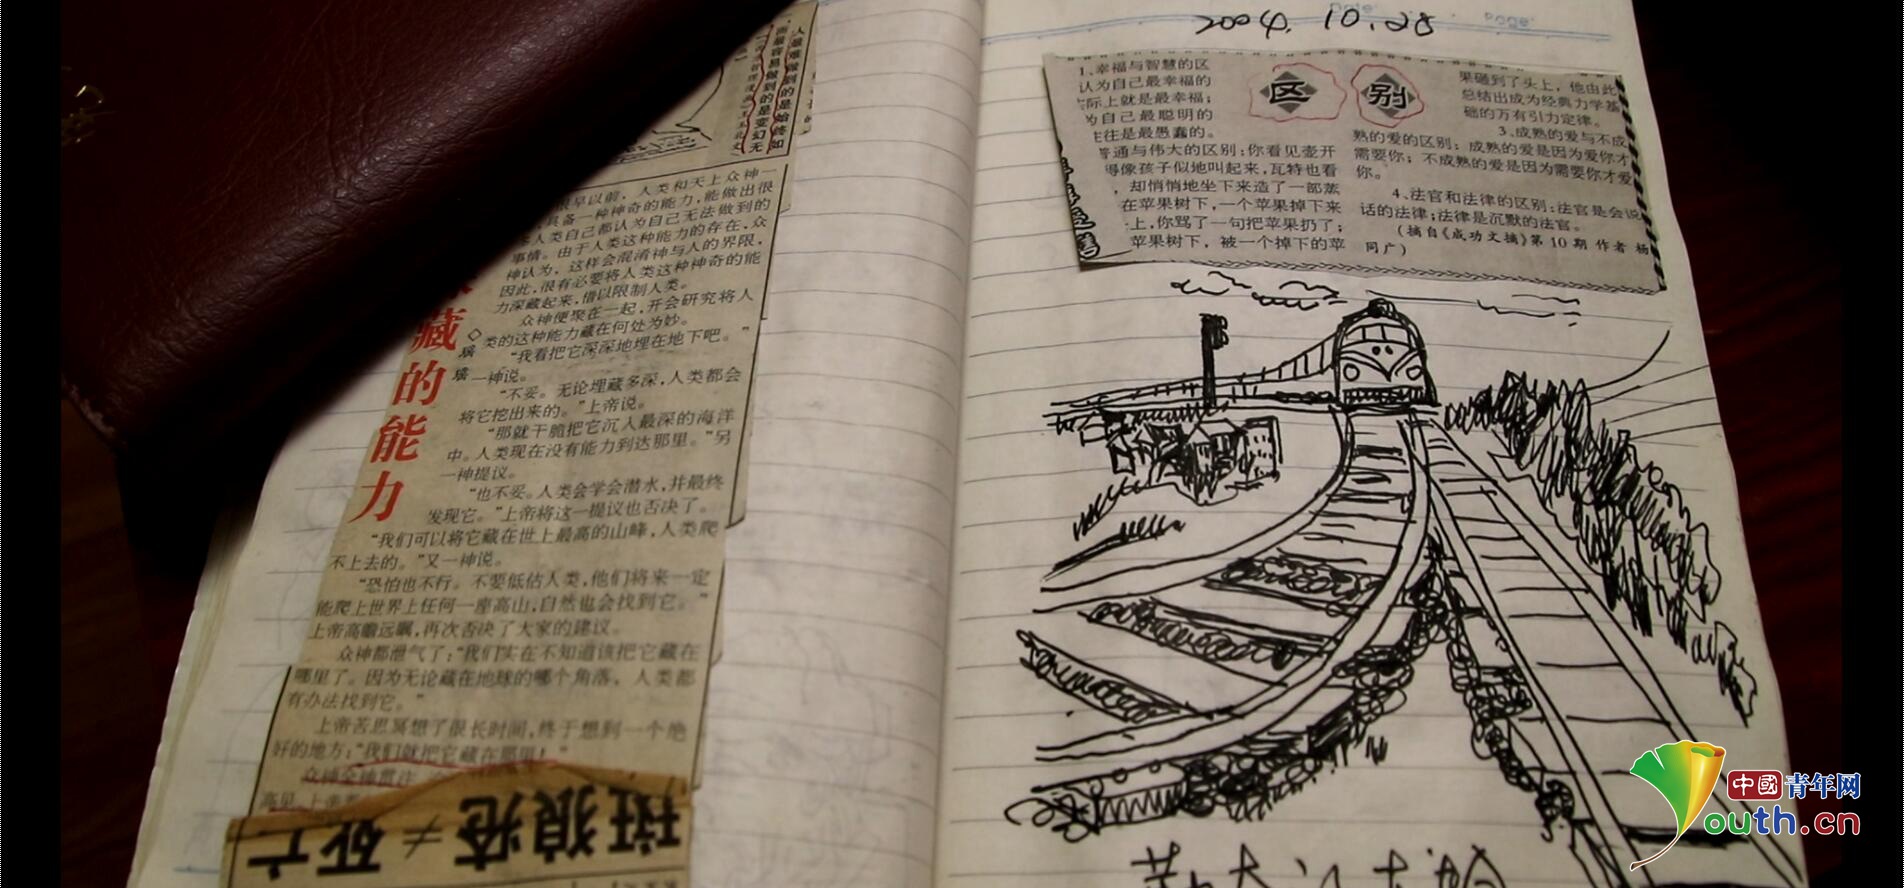 人最难做到的是始终如
而最容易做到的是变幻无
藏的能力
很早以前，人类和天上众神一
具备一种神奇的能力，能做出很
多人类自己都认为自己无法做到的
事情。由于人类这种能力的存在，众
神认为，这样会混淆神与人的界限，
因此，很有必要将人类这种神奇的能
力深藏起来，借以限制人类。
众神便聚在一起，开会研究将人
类的这种能力藏在何处为妙。
◇瑶瑶
“我看把它深深地埋在地下吧。”
一神说。
“不妥。无论埋藏多深，人类都会
将它挖出来的。”上帝说。
“那就干脆把它沉入最深的海洋
中。人类现在没有能力到达那里。”另
一神提议。
“也不妥。人类会学会潜水，并最终
发现它。”上帝将这一提议也否决了。
“我们可以将它藏在世上最高的山峰，人类爬
不上去的。”又一神说。
“恐怕也不行。不要低估人类，他们将来一定
能爬上世界上任何一座高山，自然也会找到它。”
上帝高瞻远瞩，再次否决了大家的建议。
众神都泄气了：“我们实在不知道该把它藏在
哪里了。因为无论藏在地球的哪个角落，人类都
有办法找到它。”
上帝苦思冥想了很长时间，终于想到一个绝
好的地方：“我们就把它藏在那里！”
众神全神贯注
高见。上帝
斑狼疮≠死亡
2004.10.28
Date:
Page:
区别
1、幸福与智慧的区
认为自己最幸福的
实际上就是最幸福；
为自己最聪明的
往往是最愚蠢的。
普通与伟大的区别：你看见壶开
得像孩子似地叫起来，瓦特也看
，却悄悄地坐下来造了一部蒸
在苹果树下，一个苹果掉下来
上，你骂了一句把苹果扔了；
苹果树下，被一个掉下的苹
果砸到了头上，他由此
总结出成为经典力学基
础的万有引力定律。
3、成熟的爱与不成
熟的爱的区别：成熟的爱是因为爱你才
需要你；不成熟的爱是因为需要你才爱
你。
4、法官和法律的区别：法官是会说
话的法律；法律是沉默的法官。
（摘自《成功文摘》第10期 作者 杨
同广）
中國青年网
Youth.cn